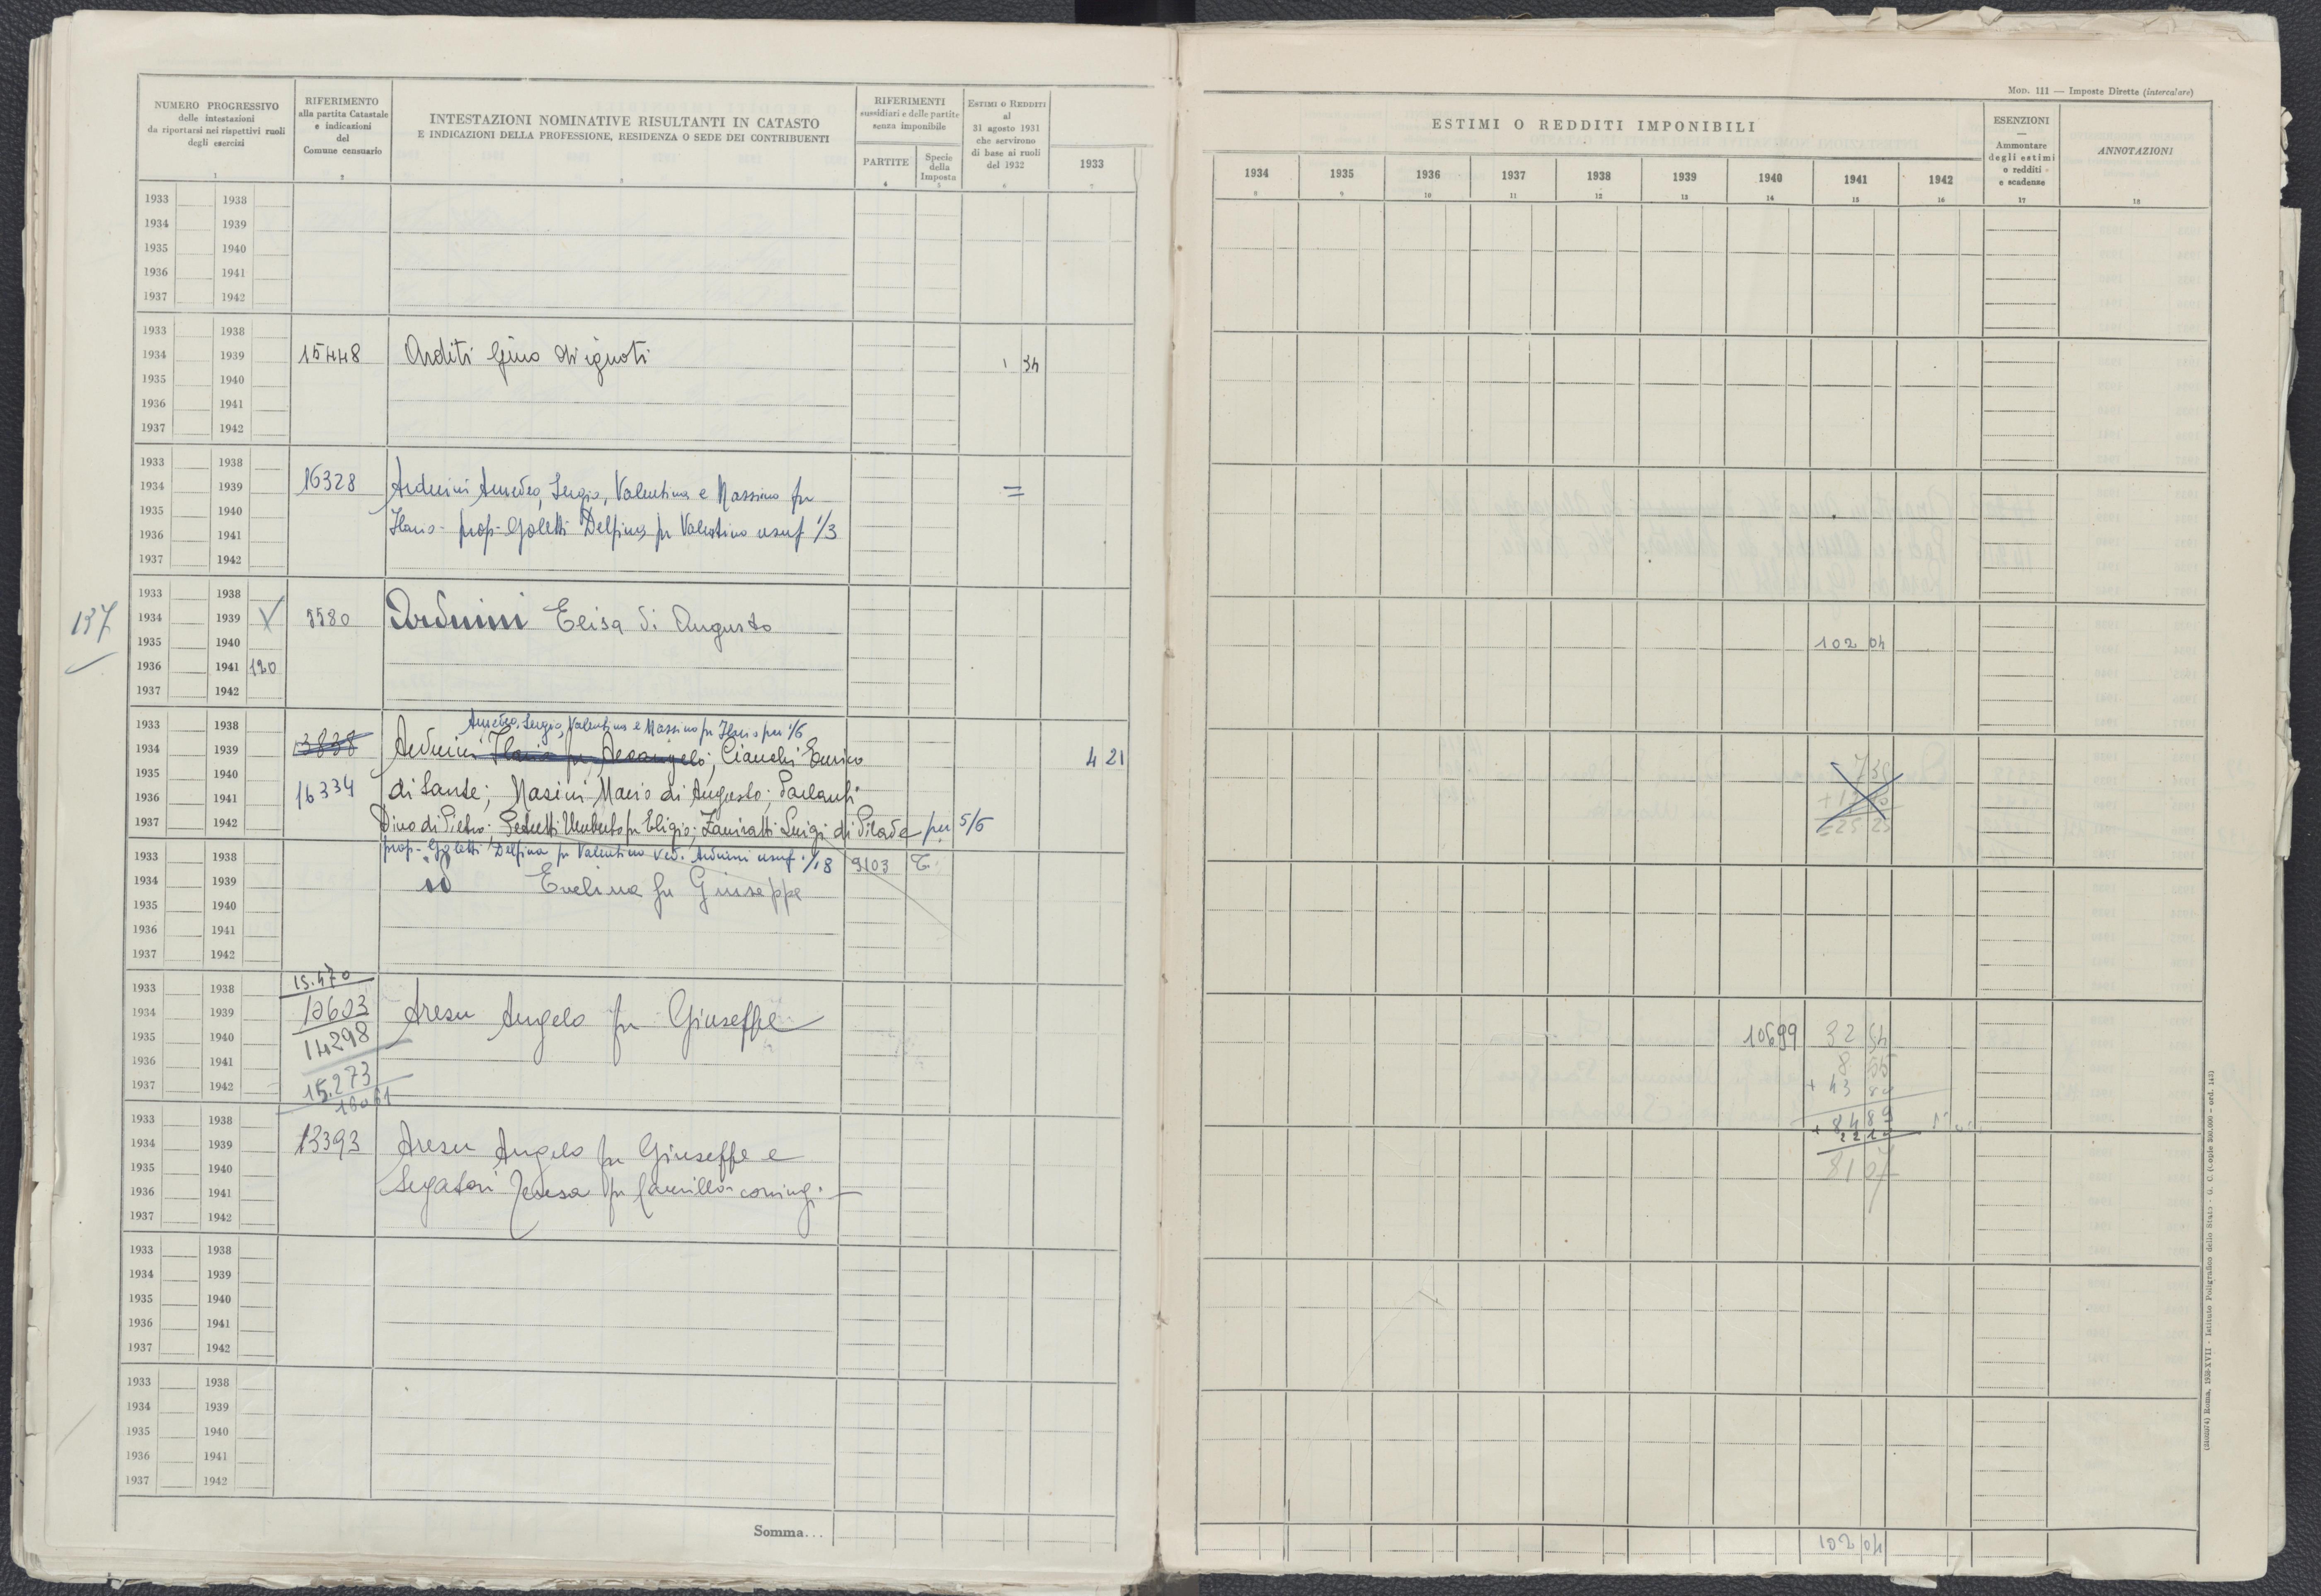 NUMERO PROGRESSIVO
delle intestazioni
da riportarsi nei rispettivi ruoli
degli esercizi
1
RIFERIMENTO
alla partita Catastale
e indicazioni
del
Comune censuario
2
INTESTAZIONI NOMINATIVE RISULTANTI IN CATASTO
E INDICAZIONI DELLA PROFESSIONE, RESIDENZA O SEDE DEI CONTRIBUENTI
3
RIFERIMENTI
sussidiari e delle partite
senza imponibile
PARTITE
4
Specie
della
Imposta
5
ESTIMI O REDDITI
al
31 agosto 1931
che servirono
di base ai ruoli
del 1932
6
1933
7
Mod. 111 — Imposte Dirette (intercalare)
ESTIMI O REDDITI IMPONIBILI
1934 1935 1936 1937 1938 1939 1940 1941 1942
8 9 10 11 12 13 14 15 16
ESENZIONI
—
Ammontare
degli estimi
o redditi
e scadenze
17
ANNOTAZIONI
18
1933 1938
1934 1939
1935 1940
1936 1941
1937 1942
1933 1938
1934 1939 15448 Arditi Gino di ignoti 1 34
1935 1940
1936 1941
1937 1942
1933 1938
1934 1939 16328 Arduini Amedeo, Sergio, Valentina e Massimo fu =
1935 1940
Ilario - prop - Goletti Delfina fu Valentino usuf 1/3
1936 1941
1937 1942
1933 1938
137 1934 1939 5580 Arduini Elisa di Augusto
1935 1940 102 04
1936 1941 120
1937 1942
1933 1938 Amedeo, Sergio, Valentina e Massimo fu Ilario per 1/6
1934 1939 13838 Arduini Ilario fu Arcangelo; Cianchi Enrico 4 21
1935 1940
1936 1941 16334 di Sante; Masini Mario di Augusto;
1937 1942 Dino di Pietro; Umberto fu Eligio; Luigi di Pilade per 5/6
= 25 25
1933 1938 prop - Goletti Delfina fu Valentino ved. Arduini usuf. 1/18 9103 T.
1934 1939 id Evelina fu Giuseppe
1935 1940
1936 1941
1937 1942
15.470
1933 1938 10603
1934 1939 Aresu Angelo fu Giuseppe
1935 1940 14298 106 99 32 54
1936 1941 8 55
1937 1942 15.273 + 43 80
16061
1933 1938 84 89
1934 1939 13393 Aresu Angelo fu Giuseppe e
1935 1940 81 07
1936 1941 Segatori Teresa fu Camillo coniug.
1937 1942
1933 1938
1934 1939
1935 1940
1936 1941
1937 1942
1933 1938
1934 1939
1935 1940
1936 1941
1937 1942
Somma... 102 04